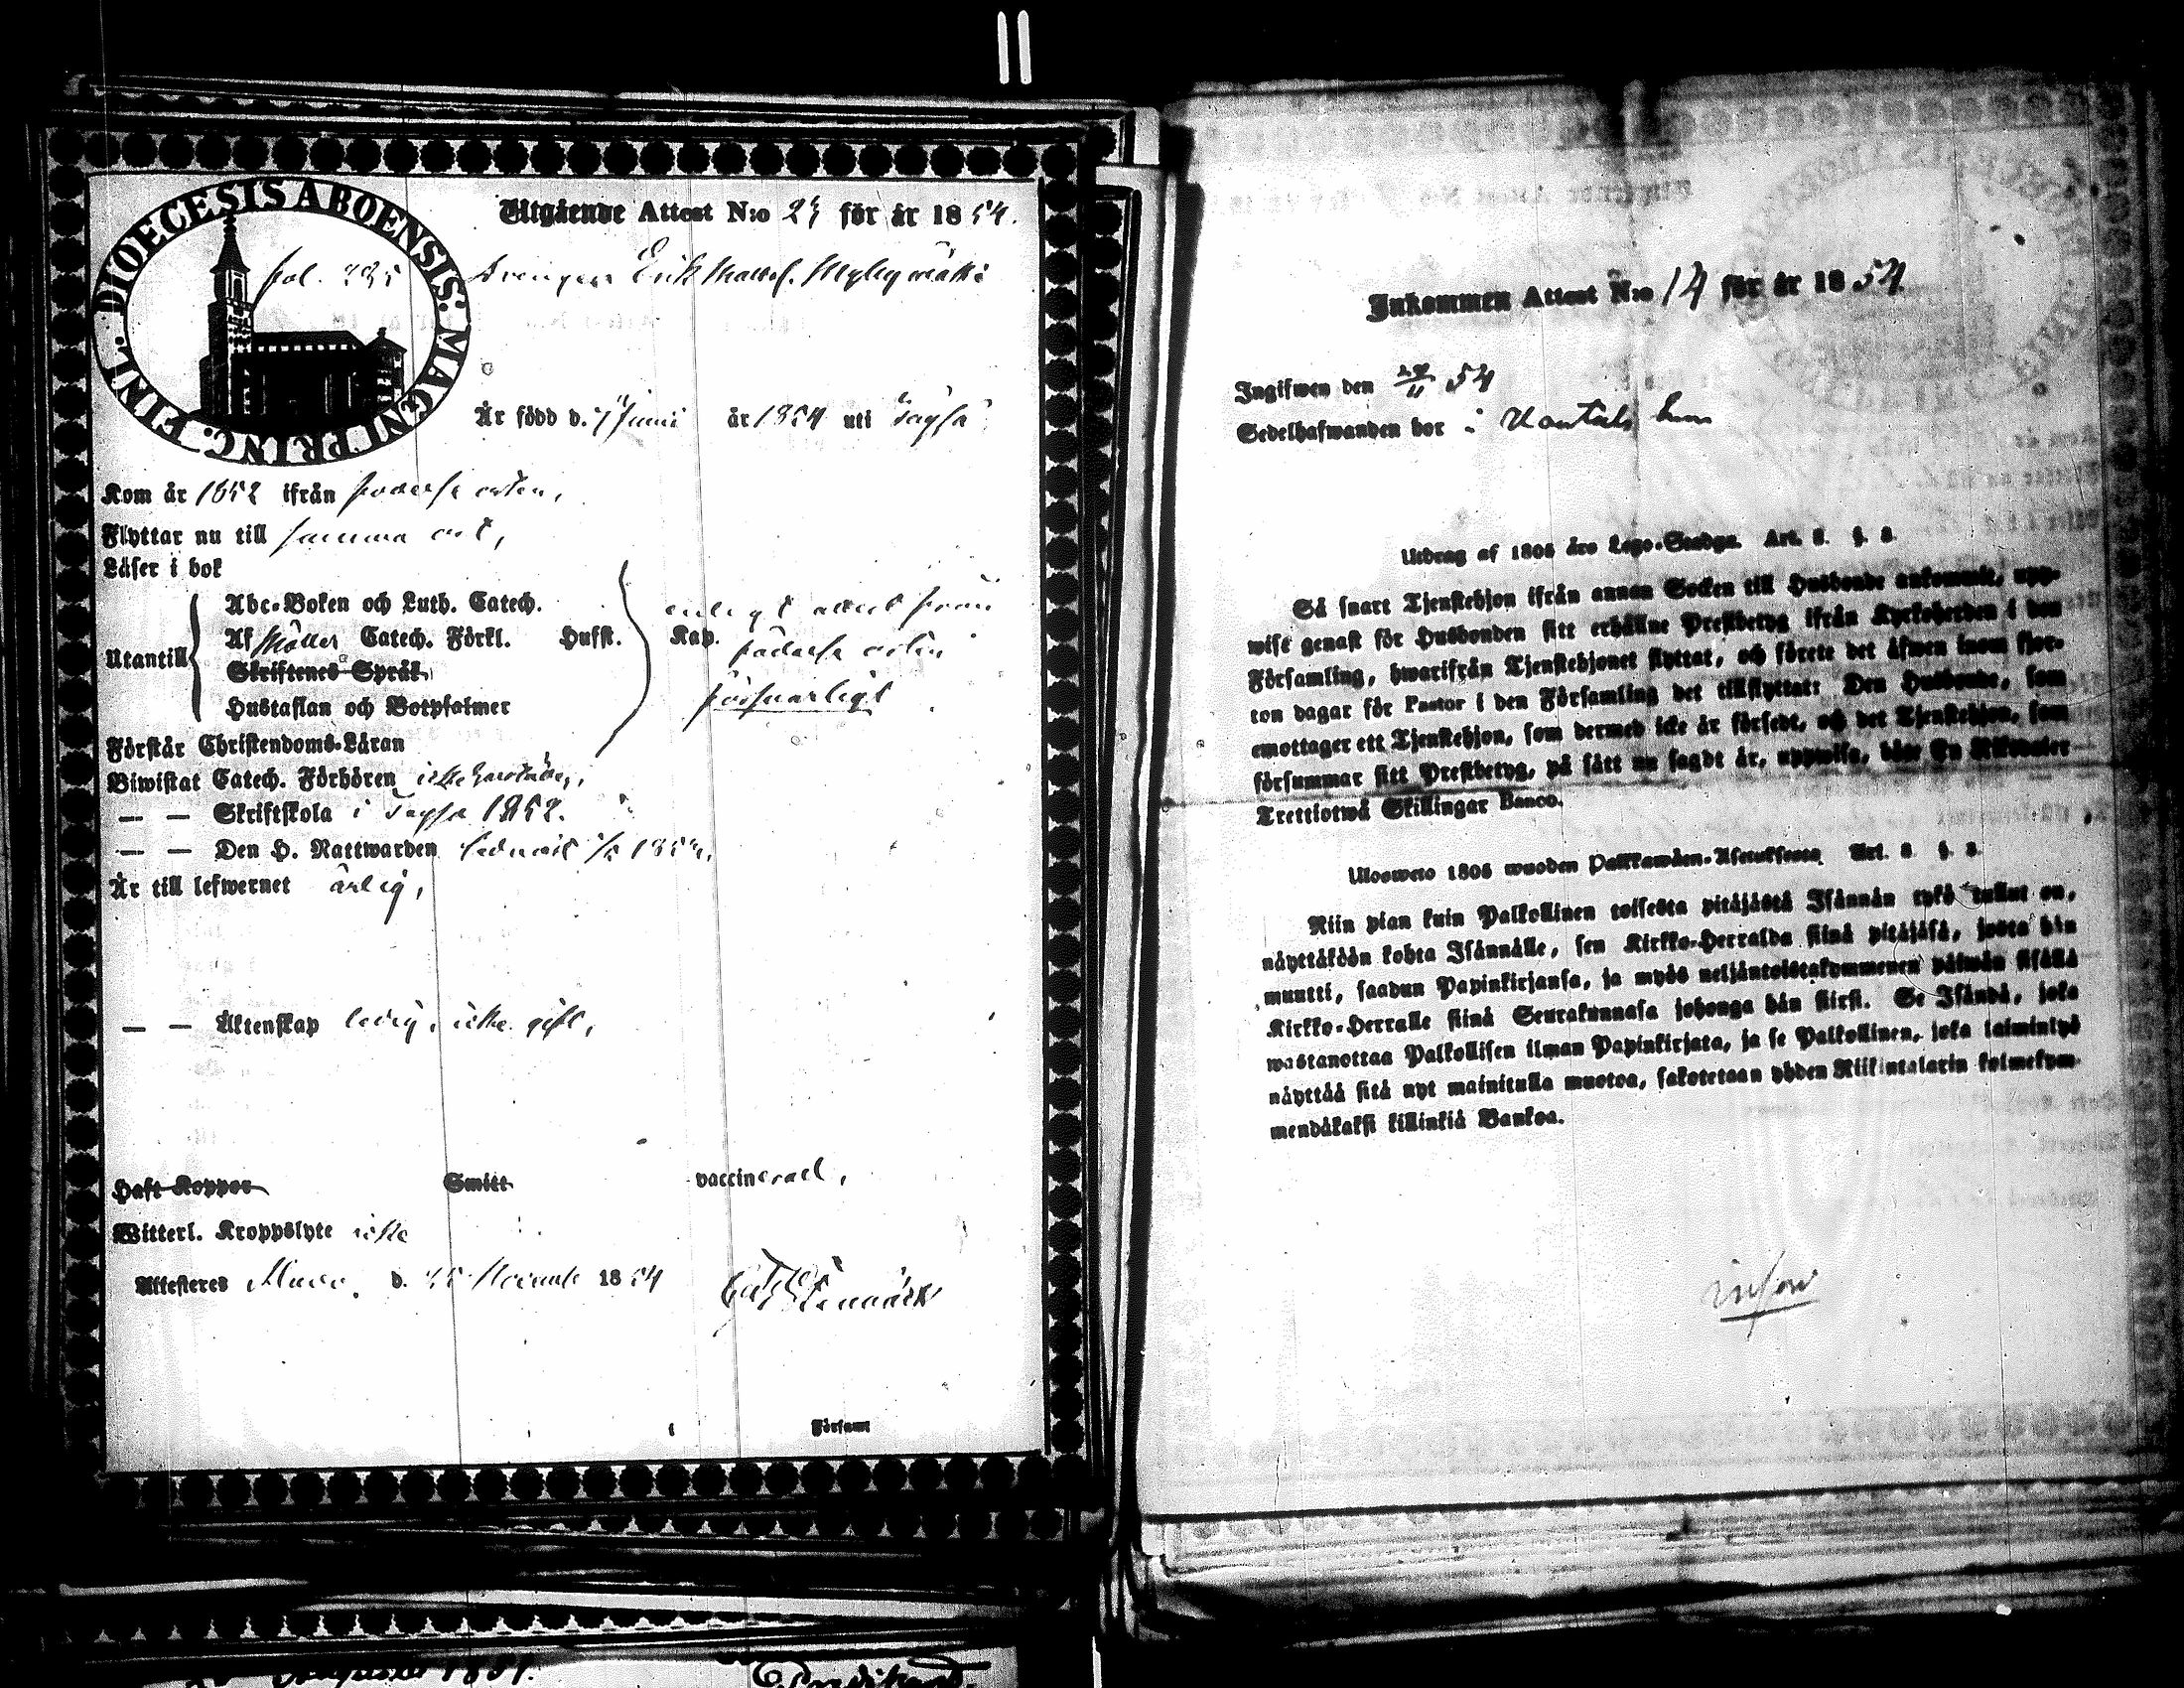 DIOECESIS ABOENSIS. MAGNI PRINC. FINL.
Utgående Attest N:o 23 för år 1854.
fol. 235 Drengen Erik Matts. Myllymäki
Är född d. 7 Junii år 1834 uti Tavsa
Kom år 1852 ifrån födelse orten,
Flyttar nu till samma ort,
Läser i bok
Utantill
Abc-Boken och Luth. Catech.
Af Möllers Catech. Förkl. Husst. Kap.
Skriftenes Språk
Hustaflan och Botpsalmer
enligt attest från
födelse orten
försvarligt
Förstår Christendoms-Läran
Biwistat Catech. Förhören icke
— — Skriftskola i 1852.
— — Den H. Nattwarden 1854.
Är till lefwernet ärlig,
— — Äktenskap ledig, icke gift,
Haft Koppor Smitt vaccinerad,
Witterl. Kroppslyte icke
Attesteres d. November 1854
Församl
Inkommen Attest N:o 14 för år 1854
Ingifwen den 54
Sedelhafwanden bor i
Utdrag af 1805 års Lego-Stadga. Art. 8. §. 8.
Så snart Tjenstehjon ifrån annan Socken till Husbonde ankommit, upp-
wise genast för Husbonden sitt erhållne Prestbetyg ifrån Kyrkoherden i den
Församling, hwarifrån Tjenstehjonet flyttat, och förete det äfwen inom fjor-
ton dagar för Pastor i den Församling det tillflyttat: Den Husbonde, som
emottager ett Tjenstehjon, som dermed icke är försedt, och det Tjenstehjon, som
försummar sitt Prestbetyg, på sätt nu sagdt är, uppwisa, böte En Riksdaler
Trettiotwå Skillingar Banco.
Uloswero 1805 wuoden Palkkawäen-Asetuksesta Art. 8 §. 8.
Niin pian kuin Palkollinen toisesta pitäjästä Isännän tykö tullut on,
näyttäköön kohta Isännälle, sen Kirkko-Herralda siinä pitäjäsä, josta hän
muutti, saadun Papinkirjansa, ja myös neljäntoistakymmenen päiwän sisällä
Kirkko-Herralle siinä Seurakunnasa johonga hän siirsi. Se Isändä, joka
wastanottaa Palkollisen ilman Papinkirjata, ja se Palkollinen, joka laimintyö
näyttää sitä nyt mainitulla muotoa, sakotetaan yhden Riikintalarin kolmekym-
mendäkaksi killinkiä Bankoa.